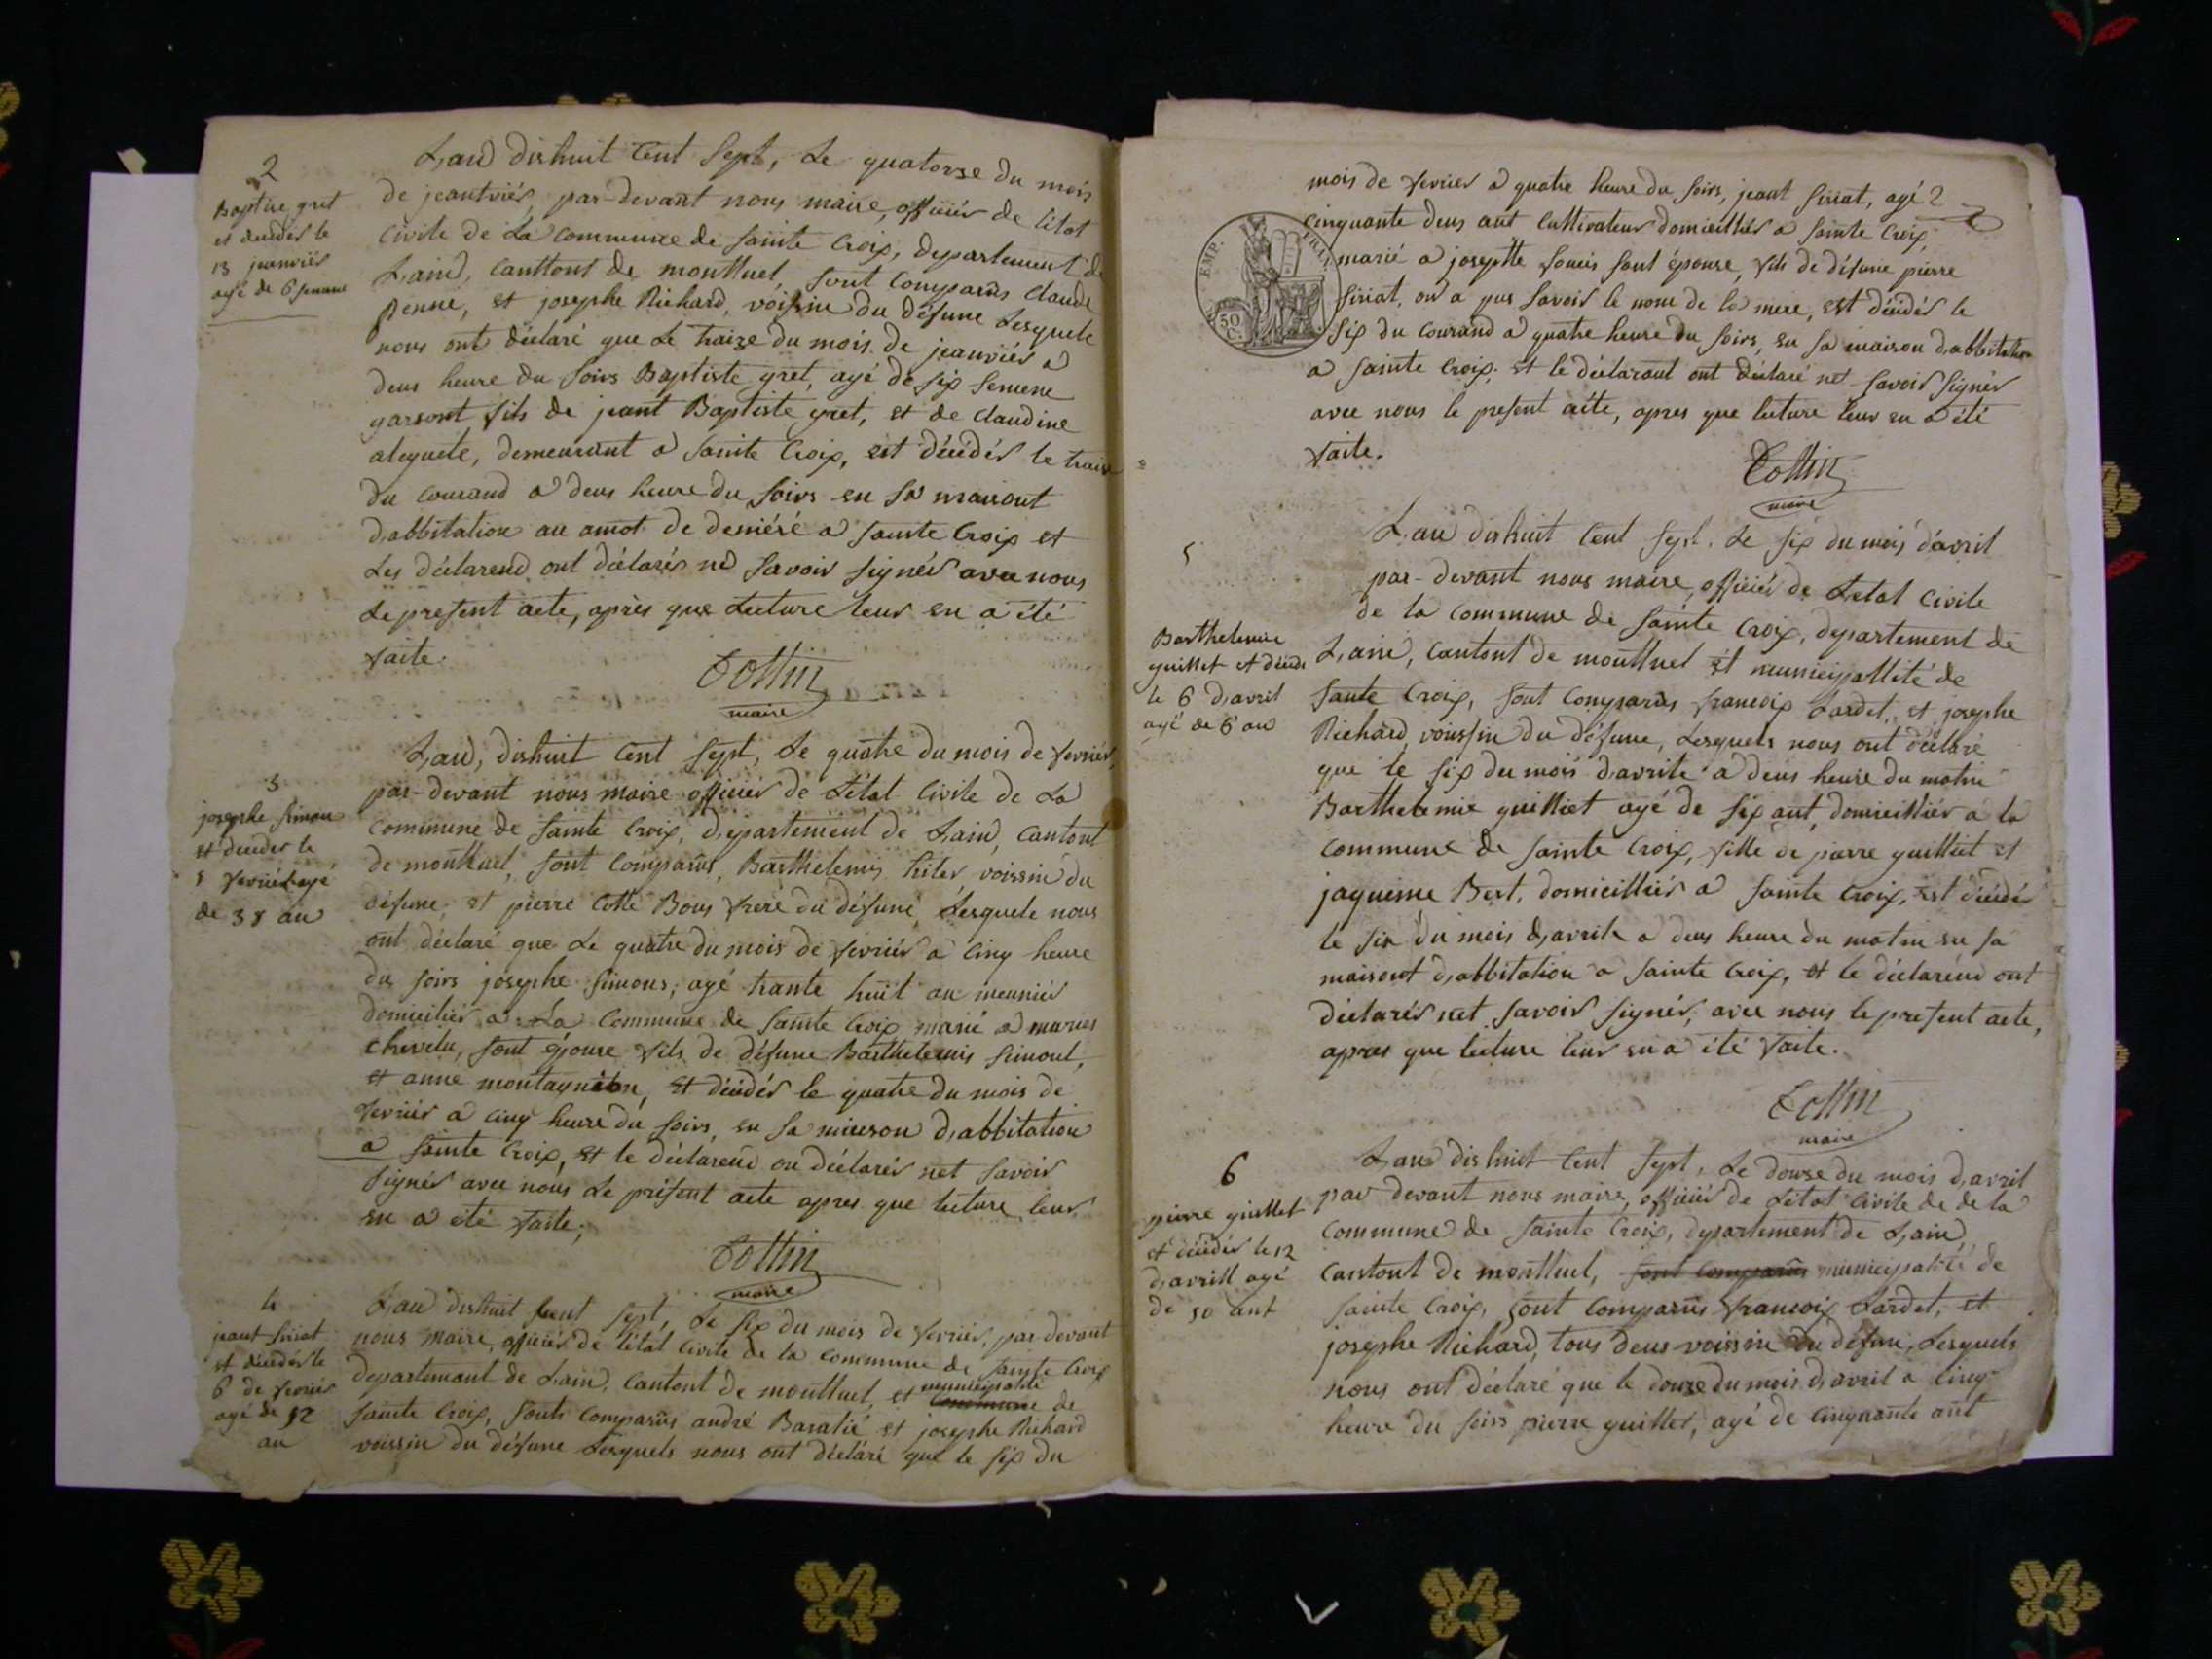 2
Baptise gret
et deceder le
13 jeanvier
agé de 6 semene
L,an dishuit Cent Sept, Le quatorze du mois
de jeantviér, par-devant nous maire, officiér de l'étot
Civile de La Commune de Sainte Croix, departement de
L,ain, Canttont de montluel, sont Comparûs Claude
Penne, et josephe Richard, voisine du défune Lesquele
nous ont déclaré que Le traize du mois de jeanviér a
deus heure du soirs Baptiste gret, agé de six Semene
garsont fils de jeant Baptiste gret, et de Claudine
alequete, demeurant a Sainte Croix, est décédér le traize
du Courand a deus heure du soirs en sa maisont
d,abbitation au amot de deniéré a Sainte Croix et
Les déclarend ont déclarés ne Savoir signér avec nous
Le present acte, après que Lecture leur en a été
faite.
Cottin
maire
3
josephe Simon
et deceder le
5 fevriér agé
de 38 an
L,an, dishuit Cent Sept, Le quatre du mois de fevrier,
par-devant nous maire officiér de L'état Civile de La
Commune de Sainte Croix, departement de L,ain, Cantont
de montluel, sont Comparûs, Barthelemis hiter voissin du
défune, et pierre Cotte Bous frere du défune, Lesquele nous
ont déclaré que Le quatre du mois de fevriér a Cinq heure
du soirs josephe Simons, agé trante huit an meuniér
domicilier a La Commune de Sainte Croix marié a maries
chevelu, sont épouse fils de défune Barthelemis Simont,
et anne montagneton, et décédér le quatre du mois de
fevriér a cinq heure du soirs, en sa maieson d,abbitation
a Sainte Croix, et le déclarend on déclarér net savoir
signér avec nous Le présent acte apres que lecture leur
en a été faite,
Cottin
maire
4
jeant siriat
et décédér le
6 de fevrier
agé de 52
an
L,an dishuit Sent Sept, Le six du mois de fevriér, par-devant
nous maire, officiér de l'état Civile de la Commune de Sainte Croix
departemant de L,ain, Cantont de montluel, et municipalité Commune de
Sainte Croix, sonts Comparûs andré Baralié et josephe Richard
voissin du défune Lesquels nous ont déclaré que le six du
mois de fevrier a quatre heure du soirs, jeant siriat, agé 2
cinquante deus ant Cultivateur domicillier a Sainte Croix,
marié a josephte Soucis sont épouse, fils de défune pierre
siriat, on a pas savoir le nom de la mere, est décédér le
six du Courand a quatre heure du soirs, en sa maison d,abbitation
a Sainte Croix, et le déclarant ont déclaré net savoir signér
avec nous le present acte, apres que lecture leur en a été
faite.
EMP.
50
C.
Cottin
maire
5
Barthelemie
guillet et décéd
le 6 d,avril
agé de 6 an
L,an dishuit Cent Sept. Le six du mois d'avril
par-devant nous maire, officiér de Letat Civile
de la Commune de Sainte Croix, departement de
L,ain, Cantont de montluel et municipallité de
Sante Croix, sont Comparûs francoix Lardet, et josephe
Richard, voissin du défune, Lesquels nous ont déclaré
que le six du mois d,avrile a deus heure du matin
Barthelemie guilliet agé de six ant, domicilliér a la
Commune de Sainte Croix, fille de pierre guilliet et
jaqueme Bert, domicilliér a Sainte Croix, est décédér
le six du mois d,avrile a deus heure du matin en sa
maisont d,abbitation a Sainte Croix, et le déclarend ont
déclarér net savoir signér, avec nous le present acte,
apres que lecture leur en a été faite.
Cottin
maire
6
pierre guillet
et décédér le 12
d,avrill agé
de 50 ant
L,an dishuit Cent Sept, Le douse du mois d,avril
par devant nous maire, officiér de L'état Civile de de la
Commune de Sainte Croix, departement de L,ain,
Cantont de montluel, sont Comparûs municipalité de
Sainte Croix, sont Comparûs francoix Lardet, et
josephe Richard, tous deus voissin du défune, Lesquels
nous ont déclaré que le douze du mois d,avril a Cinq
heure du soirs pierre guillet, agé de Cinquante ant